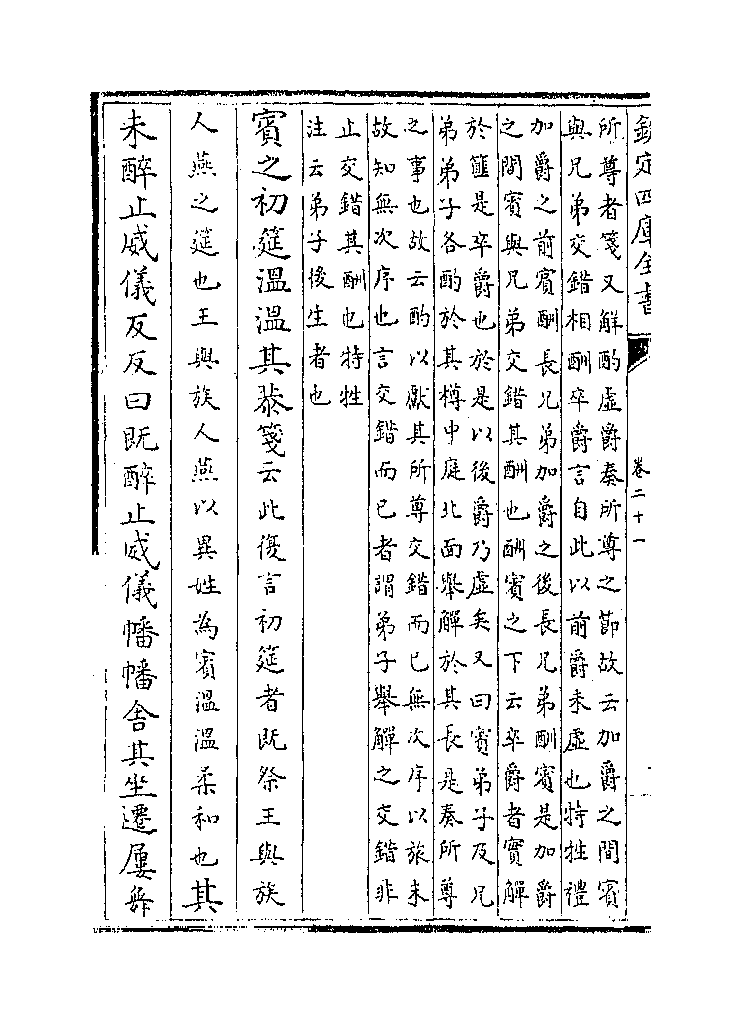 欽定四庫全書
卷二十一
所尊者箋又解酌虛爵奏所尊之節故云加爵之間賓
與兄弟交錯相酬卒爵言自此以前爵未虛也特牲禮
加爵之前賓酬長兄弟加爵之後長兄弟酬賓是加爵
之間賓與兄弟交錯其酬也酬賓之下云卒爵者實觶
於篚是卒爵也於是以後爵乃虛矣又曰賓弟子及兄
弟弟子各酌於其樽中庭北面舉觶於其長是奏所尊
之事也故云酌以獻其所尊交錯而已無次序以旅未
故知無次序也言交錯而已者謂弟子舉觶之交錯非
止交錯其酬也特牲
注云弟子後生者也
賓之初筵溫溫其恭箋云此復言初筵者既祭王與族
人燕之筵也王與族人燕以異姓為賓溫溫柔和也其
未醉止威儀反反曰既醉止威儀幡幡舍其坐遷屢舞